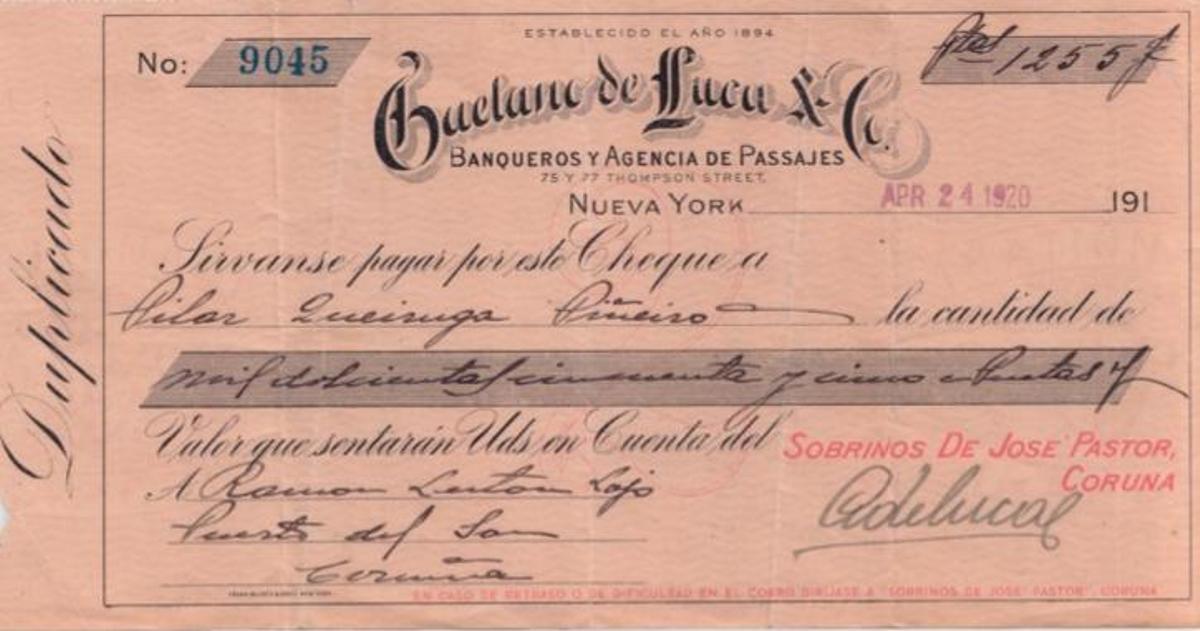 ESTABLECIDO EL AÑO 1894
No: 9045
Ptas 1255
Gaetano de Luca & Co.
BANQUEROS Y AGENCIA DE PASSAJES
75 Y 77 THOMPSON STREET.
NUEVA YORK APR 24 1920 191
Duplicado
Sirvanse pagar por este Cheque a
Pilar Queiruga Piñeiro la cantidad de
mil doscientas cincuenta y cinco Pesetas
Valor que sentarán Uds. en Cuenta del
SOBRINOS DE JOSE PASTOR,
CORUNA
A Ramon Lojo
Puerto del Son
Coruña
EN CASO DE RETRASO O DE DIFICULTAD EN EL COBRO DIRIJASE A "SOBRINOS DE JOSE PASTOR", CORUNA